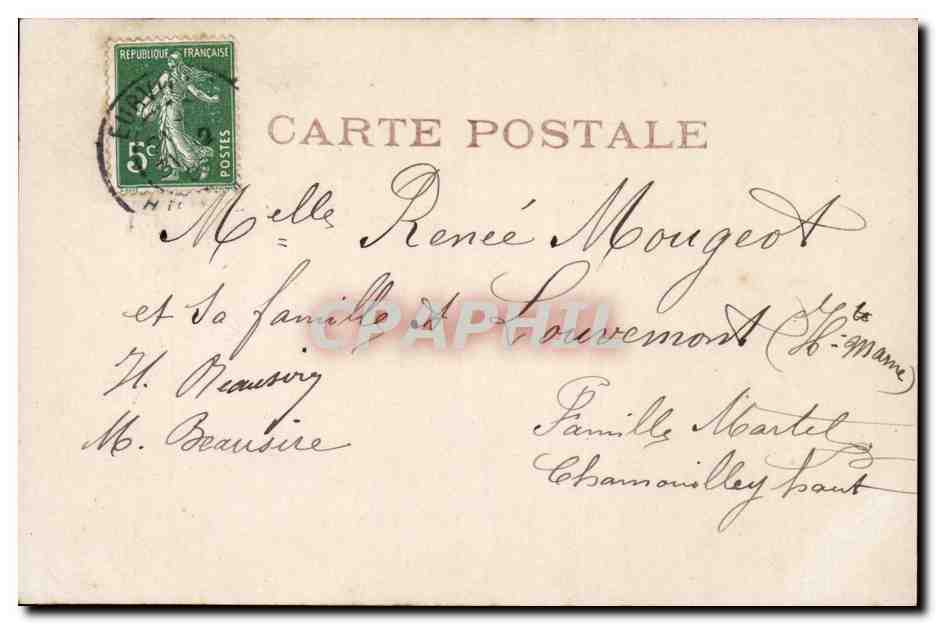 REPUBLIQUE FRANÇAISE
5c POSTES
CARTE POSTALE
Melle Renée Mougeot
et sa famille à Louvemont (Hte-Marne)
CPAPHIL
H. Beausire
M. Beausire
Famille Martel
Chamouilley haut